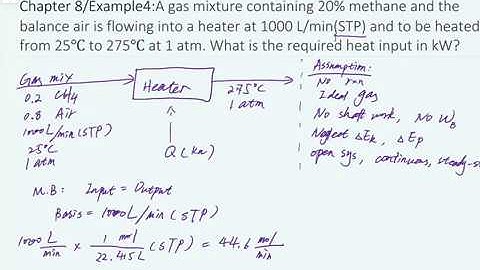 Chapter 8/Example4:A gas mixture containing 20% methane and the
balance air is flowing into a heater at 1000 L/min(STP) and to be heated
from 25℃ to 275℃ at 1 atm. What is the required heat input in kW?
Gas mix
0.2 CH4
0.8 Air
1000 L/min (STP)
25°C
1 atm
Heater
275°C
1 atm
Q (kW)
Assumption:
No rxn
Ideal gas
No shaft work, No WB
Neglect ΔEk, ΔEp
open sys, continuous, steady-s
M.B: Input = Output
Basis = 1000 L/min (STP)
1000 L/min x 1 mol/22.415L (STP) = 44.6 mol/min